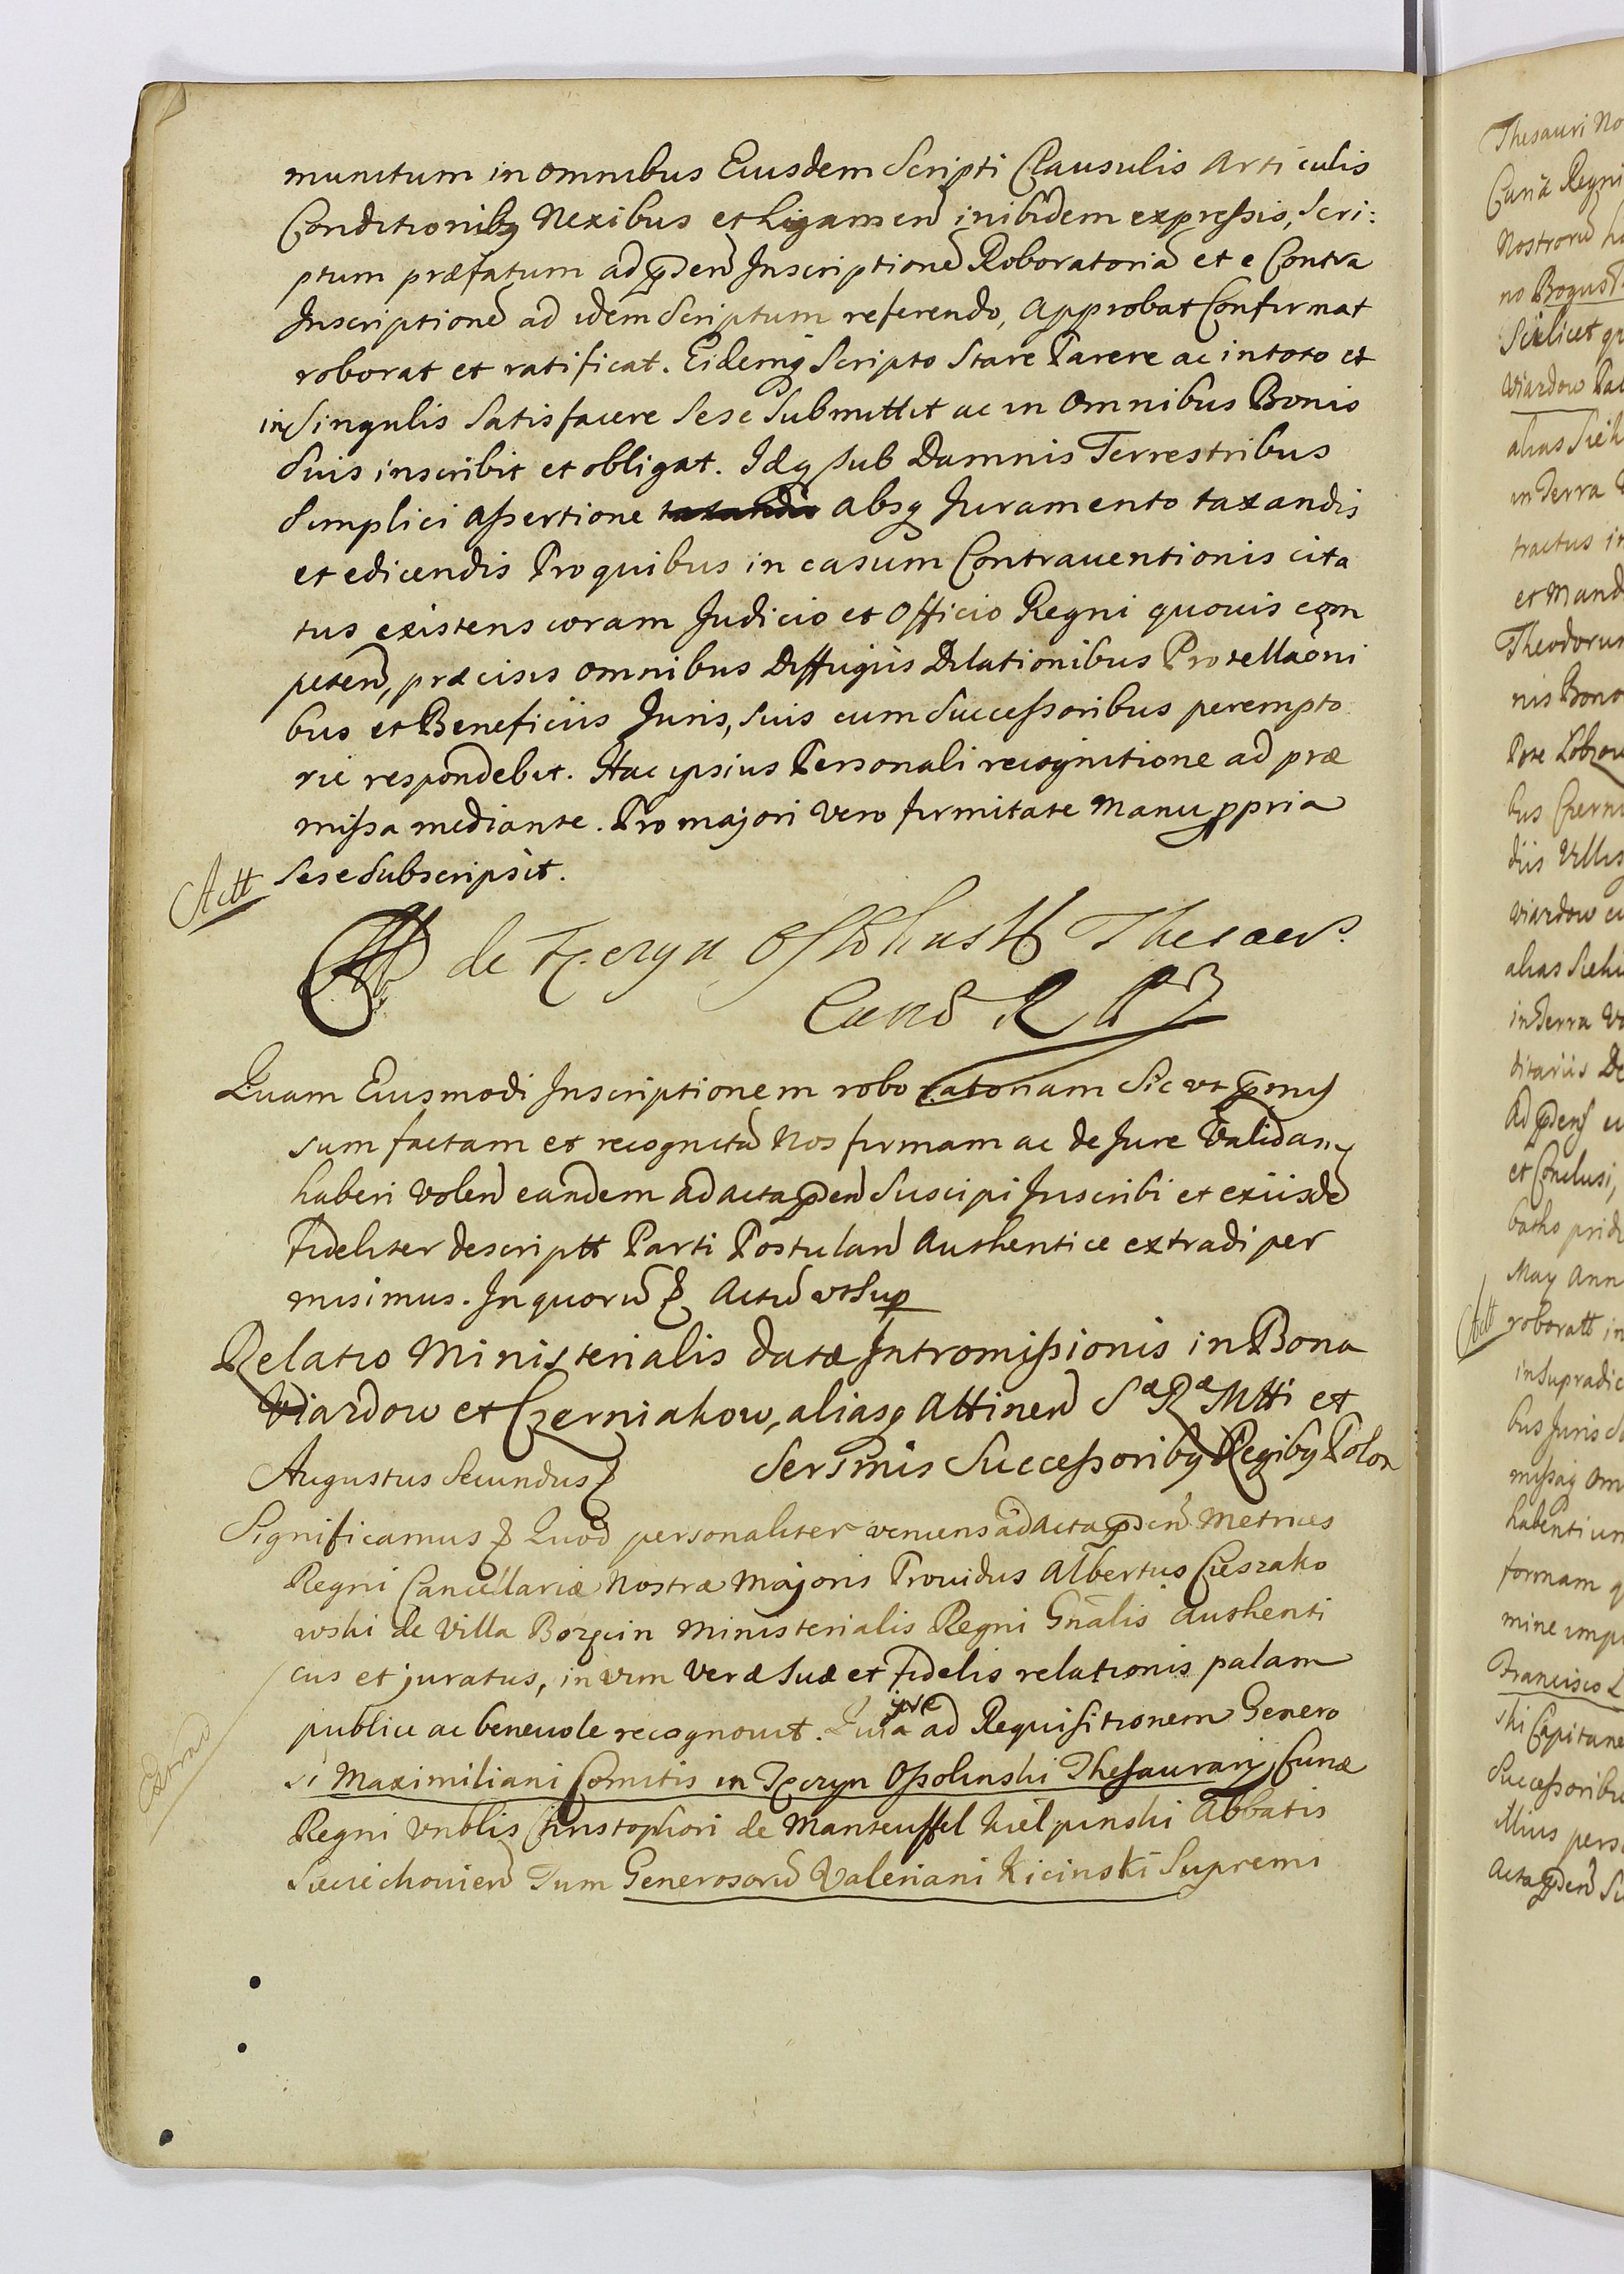 munitum in omnibus Eiusdem Scripti Clausulis Articulis
Conditionibq Nexibus et Ligamen inibidem expressis, Scri:
ptum præfatum ad pden Inscriptione Roboratoria et e Contra
Inscriptione ad idem Scriptum referendo, approbat Confirmat
roborat et ratificat. Eidemq Scripto Stare Parere ac in toto et
in Singulis Satisfacere Sese Submittit ac in Omnibus Bonis
Suis inscribit et obligat. Idq sub Damnis Terrestribus
Simplici assertione taxandis absq Juramento taxandis
et edicendis Pro quibus in casum Contrauentionis cita
tus existens coram Judicio et Officio Regni quouis com
peten, præcisis omnibus Diffugiis Dilationibus Protellaōni
bus et Beneficiis Juris, Suis cum Successoribus perempto
rie respondebit. Hac ipsius Personali recognitione ad præ
missa mediante. Pro majori vero firmitate Manu ppria
Sese Subscripsit.
Actt
de Tęczyn Ossolinski Thesaur
Cur R
Quam Eiusmodi Inscriptionem roboratoriam Sic vt pmis
sum factam et recognita Nos firmam ac de Jure Validam
haberi volen eandem ad acta pden Suscipi Inscribi et exiisde
Fideliter descriptt Parti Postulan Authentice extradi per
misimus. In quoru & Actu vt Sup
Relatio Ministerialis datæ Intromissionis in Bona
Viazdow et Czerniakow, aliasq Attinen Sæ Ræ Mtti et
Sersmis Successoribq Regibq Polon
Augustus Secundus &
Significamus & Quod personaliter veniens ad acta pden Metrices
Regni Cancellariæ Nostræ Majoris Prouidus Albertus Cieszko
wski de Villa Borzęcin Ministerialis Regni Gnalis authenti
cus et juratus, in vim Veræ Suæ et Fidelis relationis palam
publice ac beneuole recognouit. Quia ipse ad Requisitionem Genero
si Maximiliani Comitis in Tęczyn Ossolinski Thesaurarij Curiæ
Regni Vnblis Christophori de Manteuffel Kielpinski Abbatis
Sieciechouien Tum Generosoru Valeriani Kicinski Supremi
Extrad
Thesauri No
Curiæ Regni
Nostroru
no Bogus
Scilicet
viazdow
alias
in Terra
tractus in
et Mand
Theodorus
nis Bono
Czerni
diis Villis
viazdow
alias
in Terra
ditariis De
ad pden
et Conclusi,
May Ann
Actt
roboratt in
in Supradic
bus Juris
missaq om
habentium
formam
mine
Francisco
ski Capitane
Successoribus
illius pers
acta pden Su